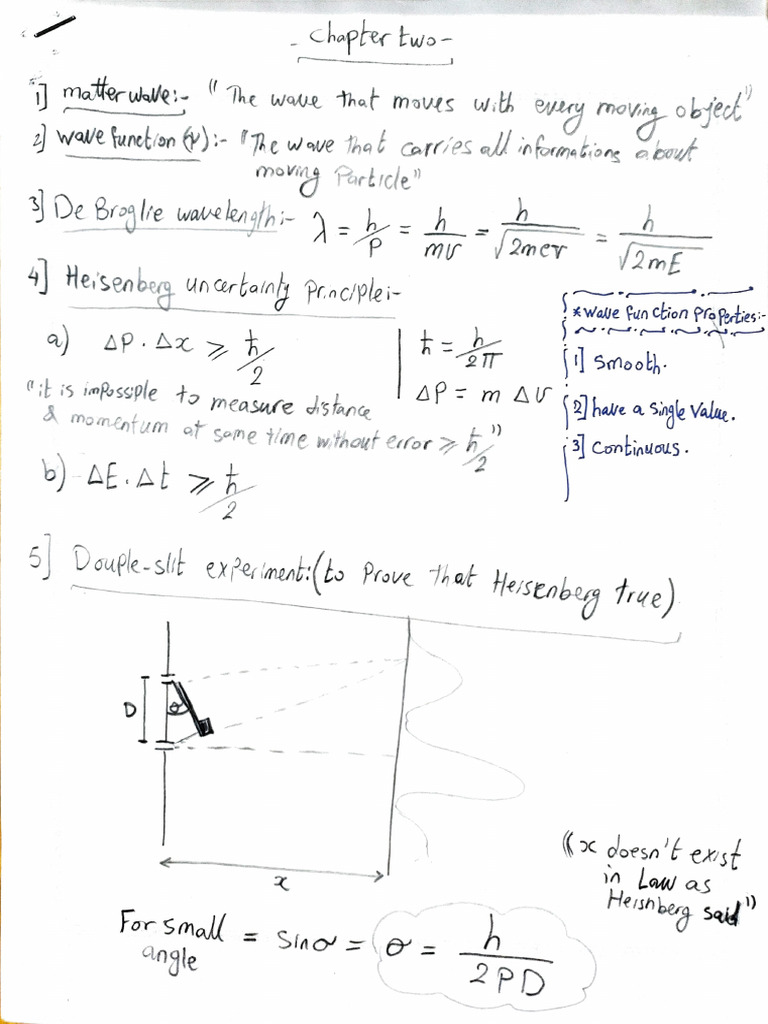 - Chapter two -
1] matter wave:- "The wave that moves with every moving object"
2] wave function (Ψ):- "The wave that carries all informations about
moving Particle"
3] De Broglie wavelength:- λ = h/P = h/mv = h/√2mev = h/√2mE
4] Heisenberg uncertainty principle:-
a) ΔP . Δx ≥ ħ/2
ħ = h/2π
ΔP = m Δv
"it is impossible to measure distance
& momentum at same time without error ≥ ħ/2"
b) ΔE . Δt ≥ ħ/2
* wave function properties:-
1] Smooth.
2] have a single value.
3] Continuous.
5] Douple-slit experiment: (to Prove that Heisenberg true)
D
θ
x
"x doesn't exist
in Law as
Heisnberg said"
For small
angle = sinσ = θ = h/2PD